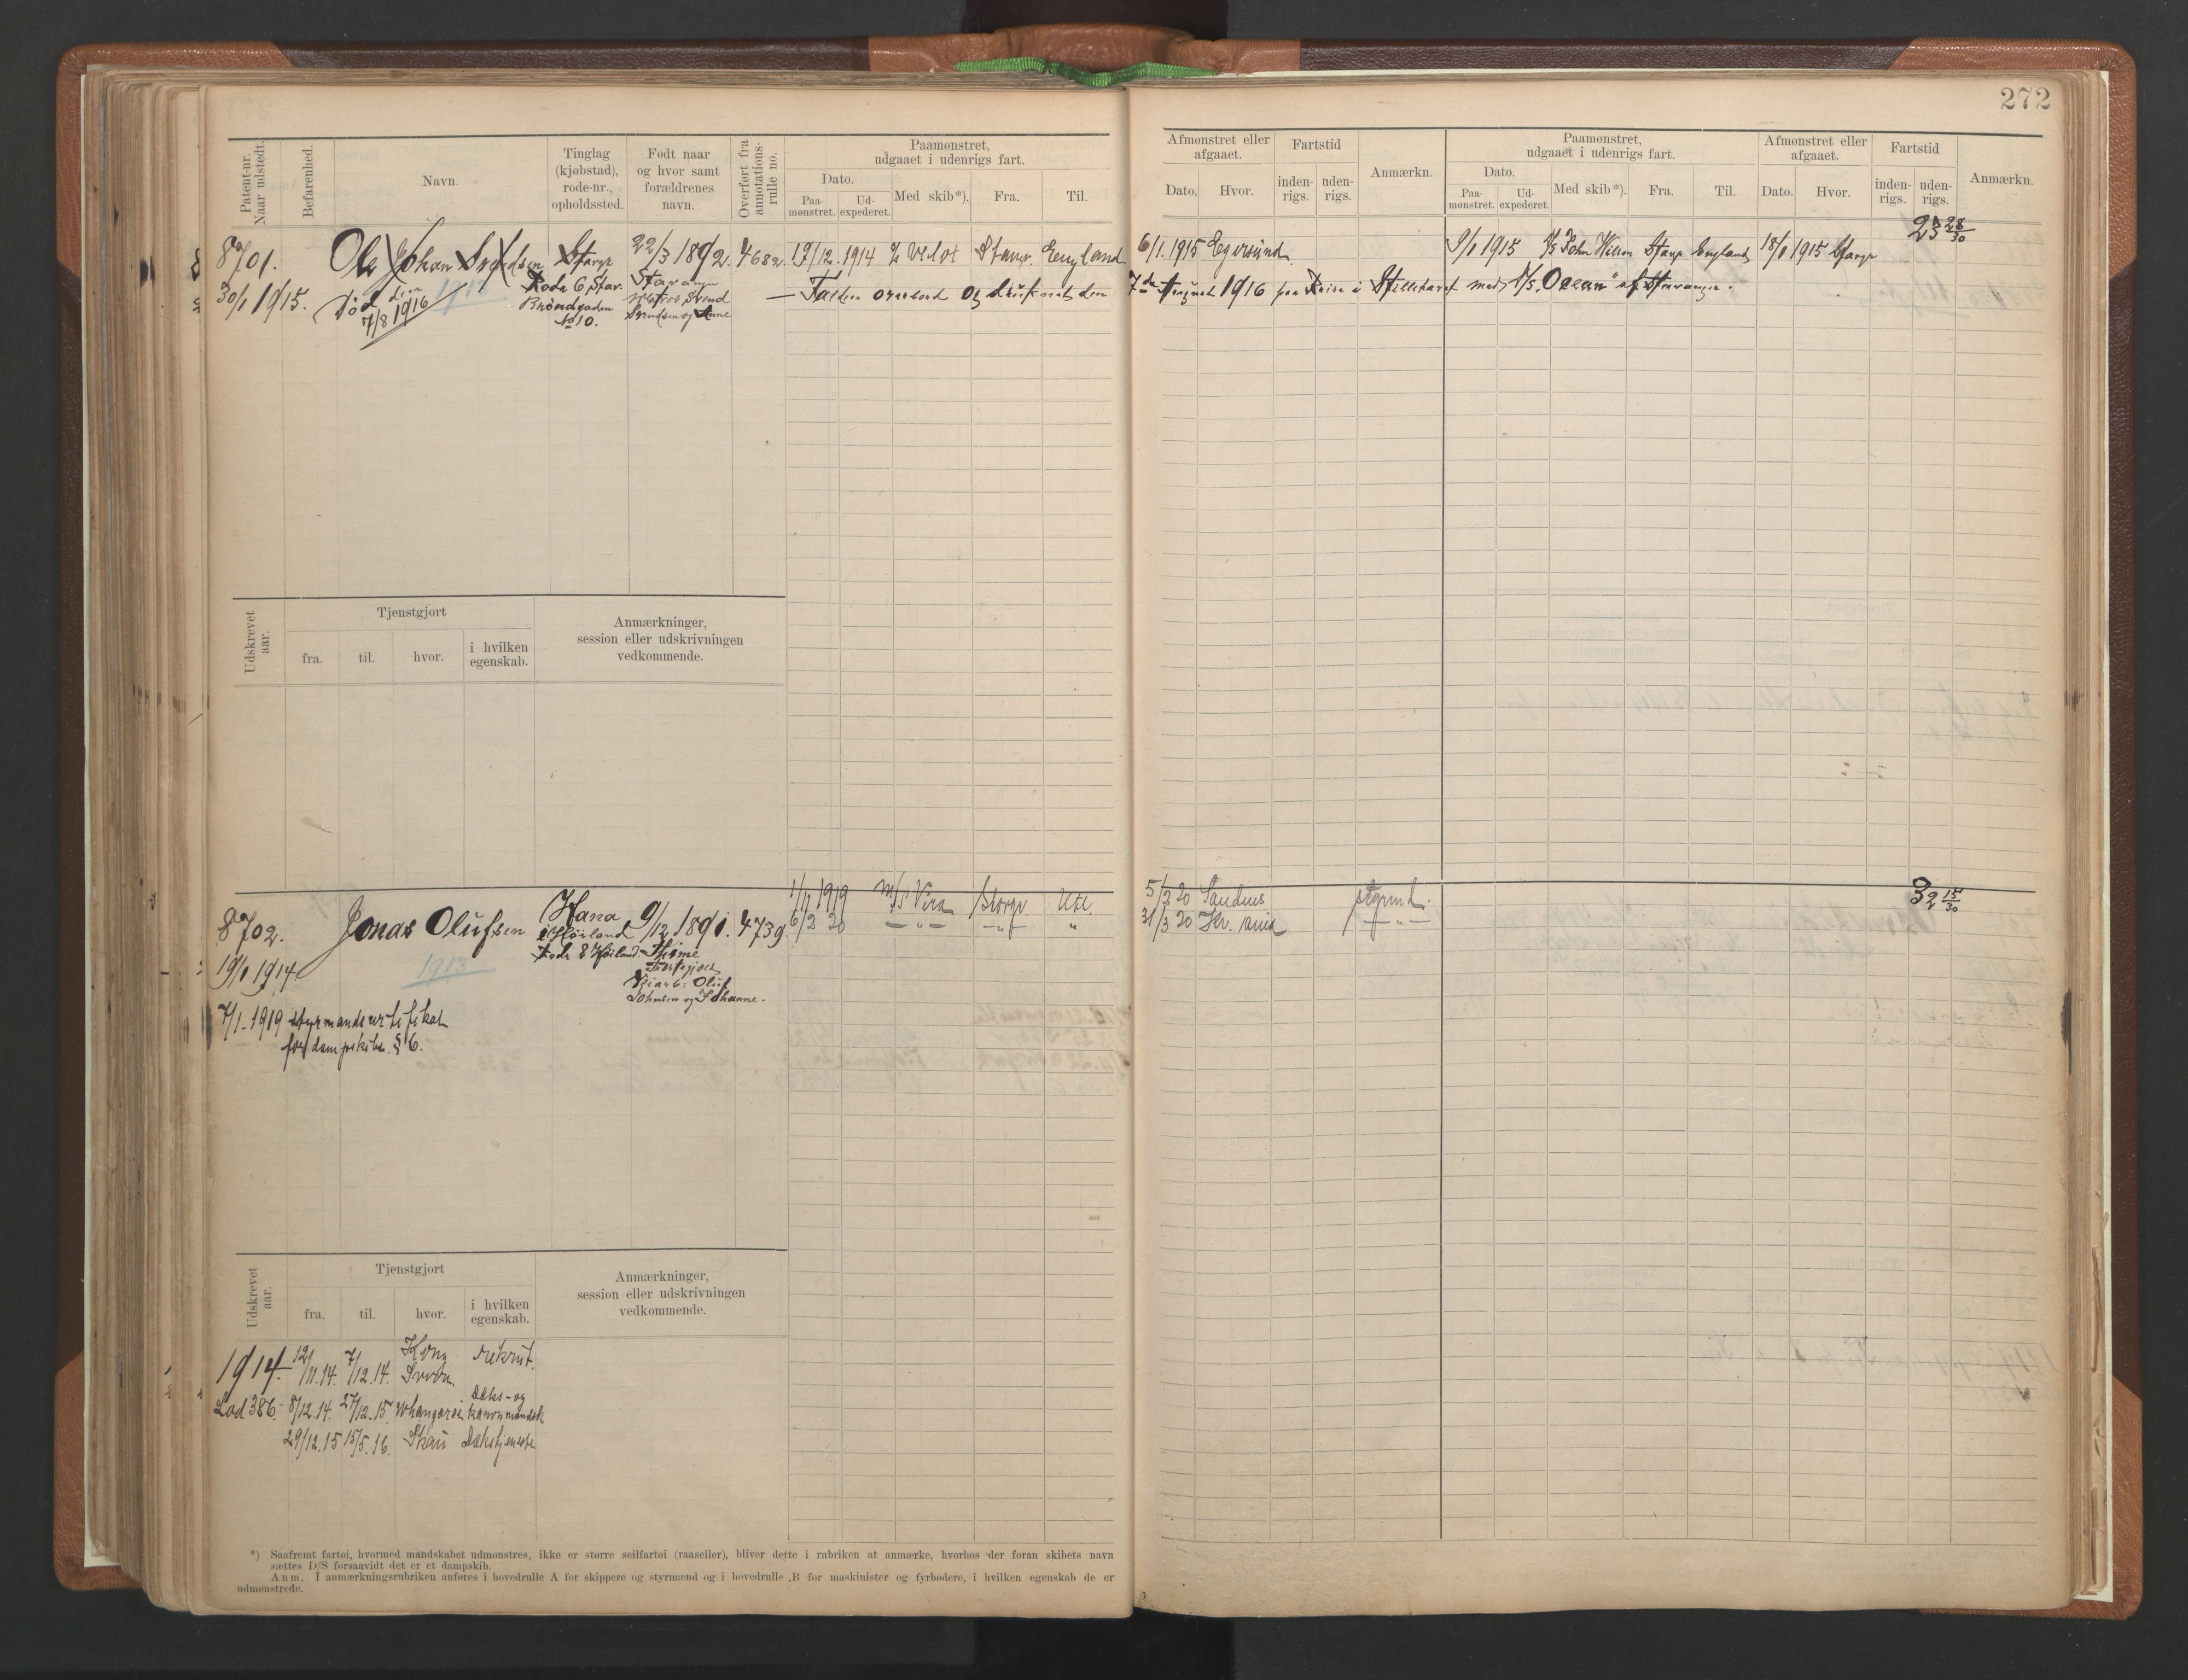 272
Patent-nr. Naar udstedt.
Befarenhed.
Navn.
Tinglag (kjøbstad), rode-nr., opholdssted.
Født naar og hvor samt forældrenes navn.
Overført fra annotations-rulle no.
Paamønstret, udgaaet i udenrigs fart.
Dato.
Paa-mønstret.
Ud-expederet.
Med skib*).
Fra.
Til.
Afmønstret eller afgaaet.
Dato.
Hvor.
Fartstid
inden-rigs.
uden-rigs.
Anmærkn.
Paamønstret, udgaaet i udenrigs fart.
Dato.
Paa-mønstret.
Ud-expederet.
Med skib*).
Fra.
Til.
Afmønstret eller afgaaet.
Dato.
Hvor.
Fartstid
inden-rigs.
uden-rigs.
Anmærkn.
23 28/30
8701. Ole Johan Svendsen Stavgr 22/3 1892. 4682. 19/12. 1914 Stavgr. England 6/1. 1915 Egersund. 9/1 1915 Stavgr England 18/1 1915 Stavgr
30/1 1915. Død den 7/8 1916
Rode 6 Stav.
No 10.
Stavanger
Svend
Svendsen og Anne
— Falden overbord og druknet den 7de August 1916 paa Reise i Stillehavet med S/S. "Ocean" af Stavanger.
Udskrevet aar.
Tjenstgjort
fra.
til.
hvor.
i hvilken egenskab.
Anmærkninger, session eller udskrivningen vedkommende.
8702. Jonas Olufsen Hana i Høiland 9/12 1891. 4739
Rode 8 Høiland
19/1 1914
1913
Oluf
Johnsen og Johanne.
7/1-1919 styrmandscertifikat
for dampskibe. § 6.
1/11 1919 M/S Vira Stavgr Utl. 5/2 20 Sandnes
6/2 20 —"— —"— " 31/3 20 Kr. sund —"—
32 15/30
Udskrevet aar.
Tjenstgjort
fra.
til.
hvor.
i hvilken egenskab.
Anmærkninger, session eller udskrivningen vedkommende.
1914. 12/11.14. 7/12.14. Kong Sverre. rekrut.
Lod 386. 8/12.14. 27/12.15. Dæks- og
29/12.15 15/5.16. Dækstjeneste
*) Saafremt fartøi, hvormed mandskabet udmønstres, ikke er større seilfartøi (raaseiler), bliver dette i rubriken at anmærke, hvorhos der foran skibets navn
sættes D/S forsaavidt det er et dampskib.
Anm. I anmærkningsrubriken anføres i hovedrulle A for skippere og styrmænd og i hovedrulle B for maskinister og fyrbødere, i hvilken egenskab de er
udmønstrede.